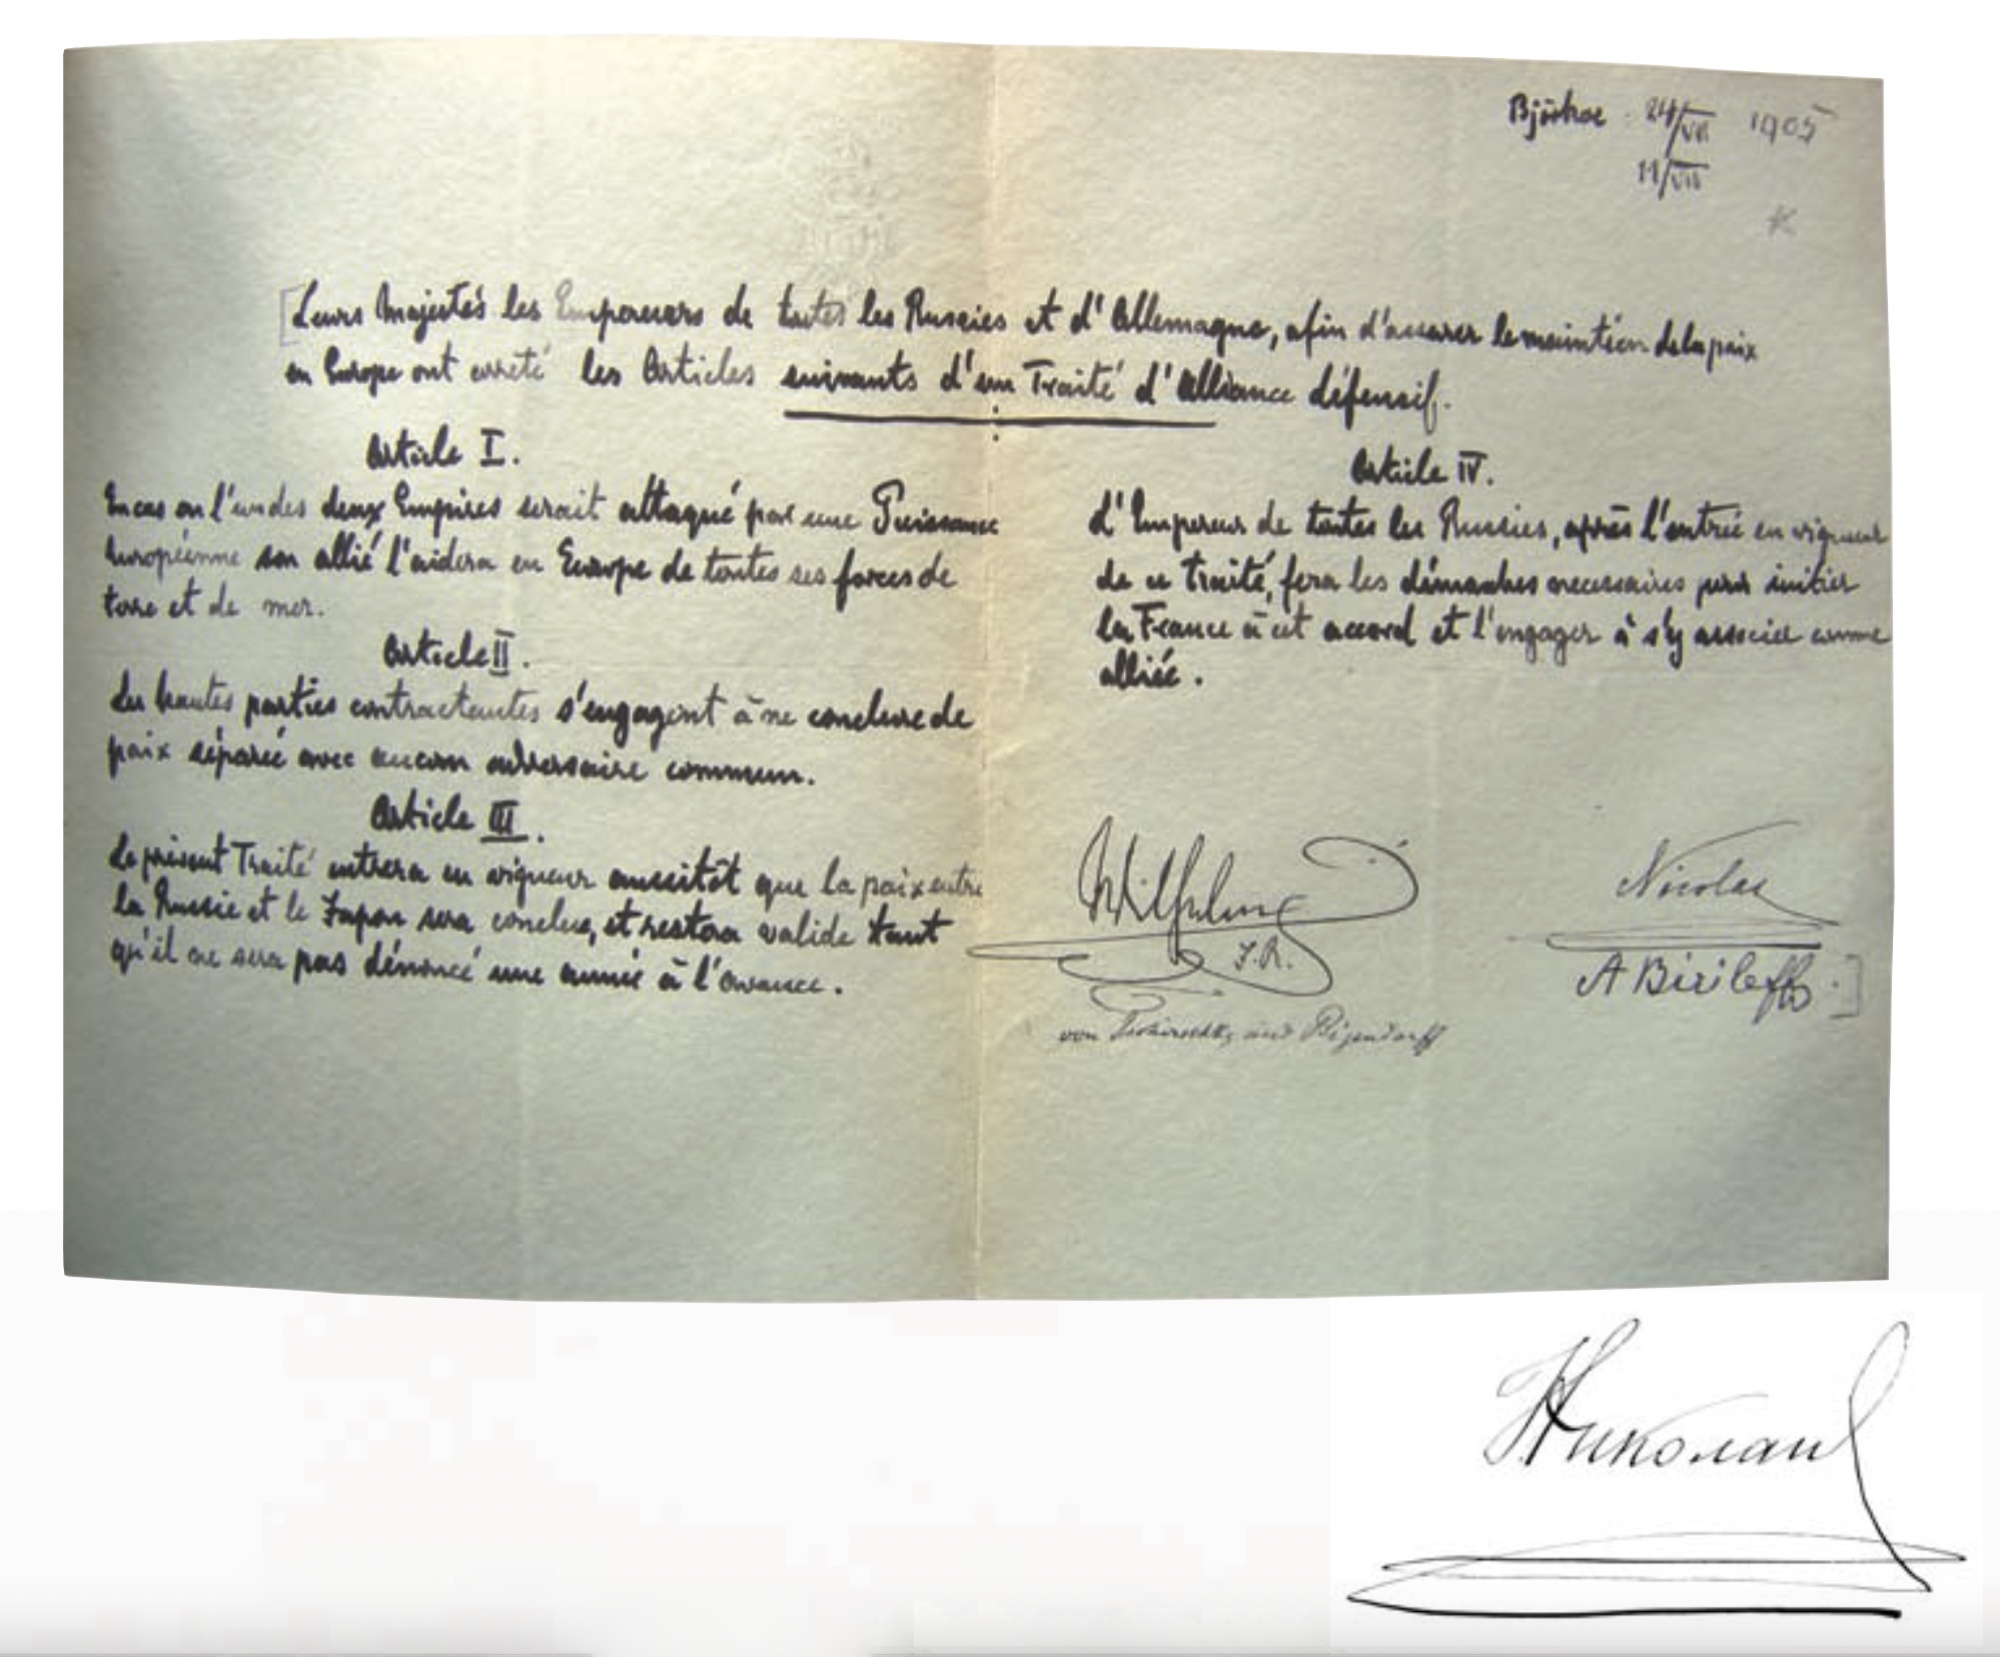 Björkoe 24/VII 1905
11/VII
Leurs Majestés les Empereurs de toutes les Russies et d'Allemagne, afin d'assurer le maintien de la paix
en Europe ont arreté les Articles suivants d'un Traité d'Alliance défensif.
Article I.
En cas où l'un des deux Empires serait attaqué par une Puissance
Européenne son allié l'aidera en Europe de toutes ses forces de
terre et de mer.
Article II.
Les hautes parties contractantes s'engagent à ne conclure de
paix séparée avec aucun adversaire commun.
Article III.
Le présent Traité entrera en vigueur aussitôt que la paix entre
la Russie et le Japon sera conclue, et restera valide tant
qu'il ne sera pas dénoncé une année à l'avance.
Article IV.
L'Empereur de toutes les Russies, après l'entrée en vigueur
de ce traité, fera les démarches necessaires pour initier
la France à cet accord et l'engager à s'y associer comme
alliée.
Wilhelm
I.R.
von Tschirschky und Bögendorff
Nicolas
A Birileff
Николай